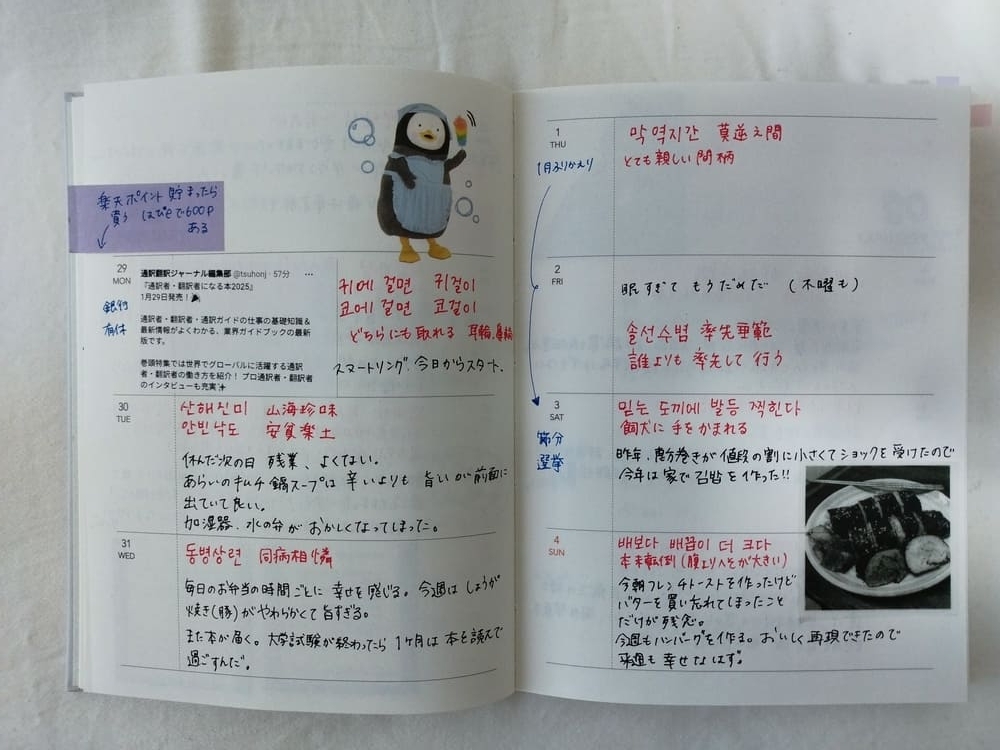 楽天ポイント 貯まったら
買う はぴeで600P
ある
29
MON
銀行
有休
通訳翻訳ジャーナル編集部 @tsuhonj・57分 …
『通訳者・翻訳者になる本2025』
1月29日発売！
通訳者・翻訳者・通訳ガイドの仕事の基礎知識&
最新情報がよくわかる、業界ガイドブックの最新
版です。
巻頭特集では世界でグローバルに活躍する通訳
者・翻訳者の働き方を紹介！ プロ通訳者・翻訳者
のインタビューも充実✨
귀에 걸면 귀걸이
코에 걸면 코걸이
どちらにも取れる 耳輪、鼻輪
スマートリング、今日からスタート、
30
TUE
산해진미 山海珍味
안빈낙도 安貧楽土
休んだ次の日 残業、よくない。
あらいのキムチ鍋スープは 辛いよりも 旨いが前面に
出ていて良い。
加湿器、水の弁が おかしくなってしまった。
31
WED
동병상련 同病相憐
毎日のお弁当の時間ごとに 幸せを感じる。今週は しょうが
焼き(豚)がやわらかくて旨すぎる。
また本が届く。大学試験が終わったら 1ヶ月は 本を読んで
過ごすんだ。
1
THU
1月ふりかえり
막역지간 莫逆之間
とても親しい間柄
2
FRI
眠すぎて もうだめだ (木曜も)
솔선수범 率先垂範
誰よりも 率先して 行う
3
SAT
節分
選挙
믿는 도끼에 발등 찍힌다
飼犬に 手をかまれる
昨年、恵方巻きが 値段の割に小さくてショックを受けたので
今年は 家で 김밥 を作った!!
4
SUN
배보다 배꼽이 더 크다
本末転倒 (腹よりへそが大きい)
今朝フレンチトーストを作ったけど
バターを買い忘れてしまったこと
だけが残念。
今週もハンバーグを作る。おいしく再現できたので
来週も 幸せなはず。